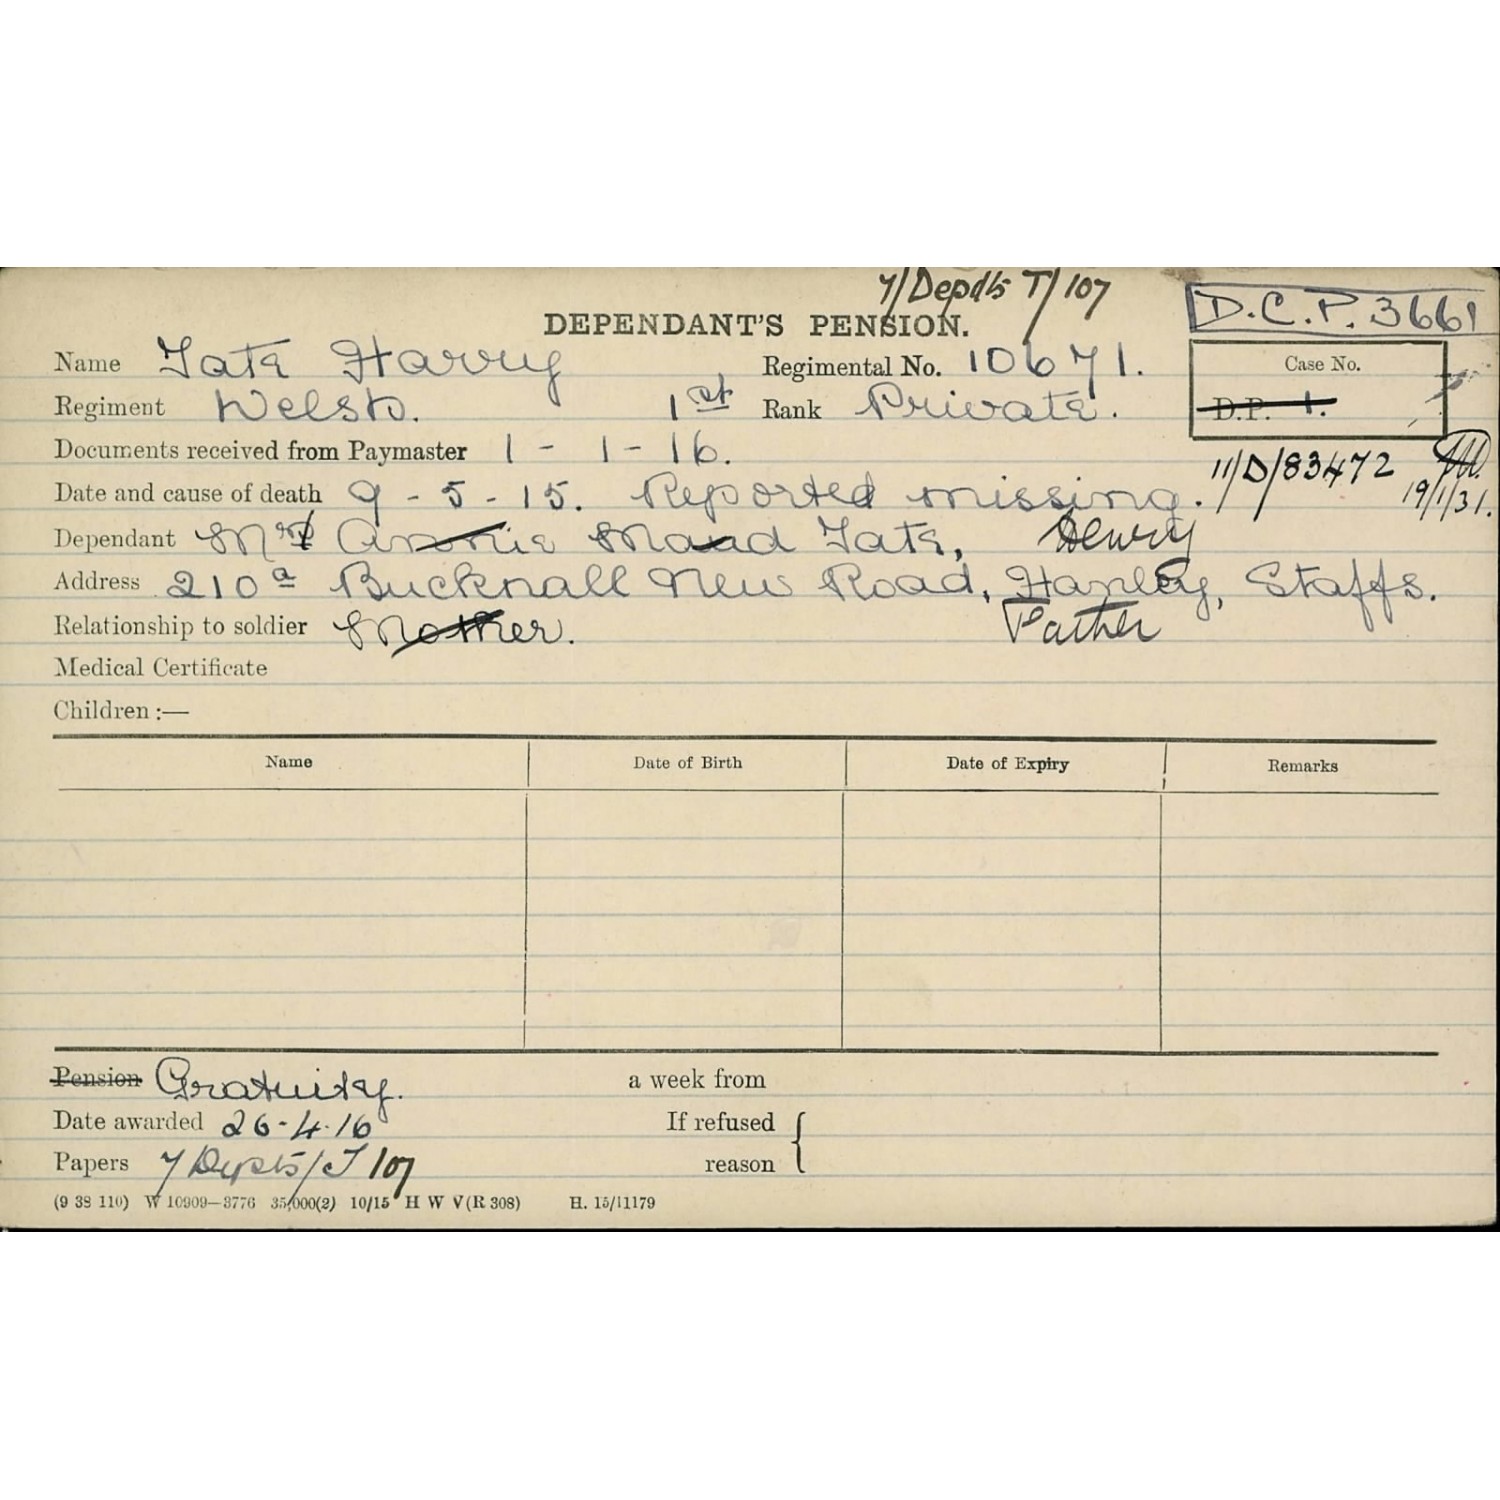 7/Depd/s T/107
DEPENDANT'S PENSION.
D.C.P. 3661
Name Tate Harry Regimental No. 10671.
Case No.
Regiment Welsh. 1st Rank Private.
D.P. 1.
Documents received from Paymaster 1 - 1 - 16.
11/D/83472
19/1/31.
Date and cause of death 9 - 5 - 15. Reported missing.
Dependant Mrs Annie Maud Tate, Henry
Address 210a Bucknall New Road, Hanley, Staffs.
Relationship to soldier Mother. Father
Medical Certificate
Children :—
Name Date of Birth Date of Expiry Remarks
Pension Gratuity. a week from
Date awarded 26-4-16 If refused
Papers 7 Depts/T 107 reason
(9 38 110) W 10909—3776 35,000(2) 10/15 H W V(R 308) H. 15/11179